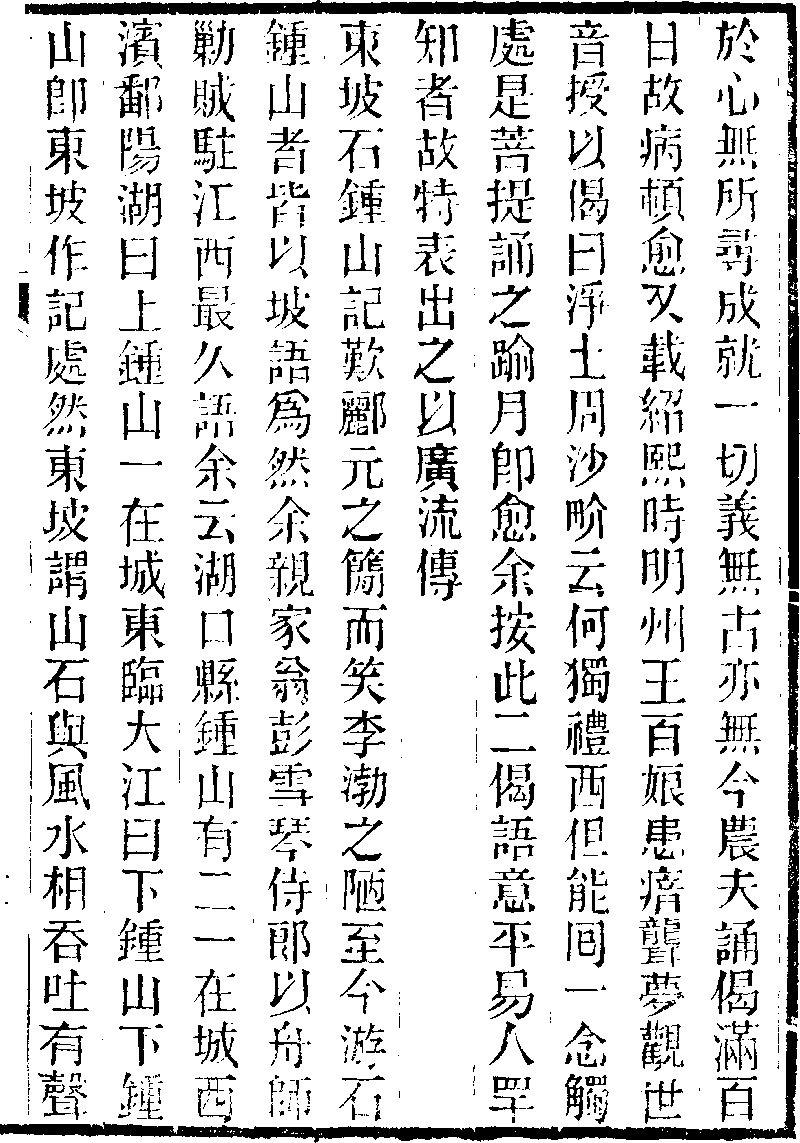 於心無所尋成就一切義無古亦無今農夫誦偈滿百
日故病頓愈又載紹熙時明州王百娘患瘖聾夢觀世
音授以偈曰淨土周沙畍云何獨禮西但能回一念觸
處是菩提誦之踰月卽愈余按此二偈語意平易人罕
知者故特表出之以廣流傳
東坡石鍾山記歎酈元之簡而笑李渤之陋至今游石
鍾山者皆以坡語爲然余親家翁彭雪琴侍郎以舟師
勦賊駐江西最久語余云湖口縣鍾山有二一在城西
濱鄱陽湖曰上鍾山一在城東臨大江曰下鍾山下鍾
山卽東坡作記處然東坡謂山石與風水相吞吐有聲